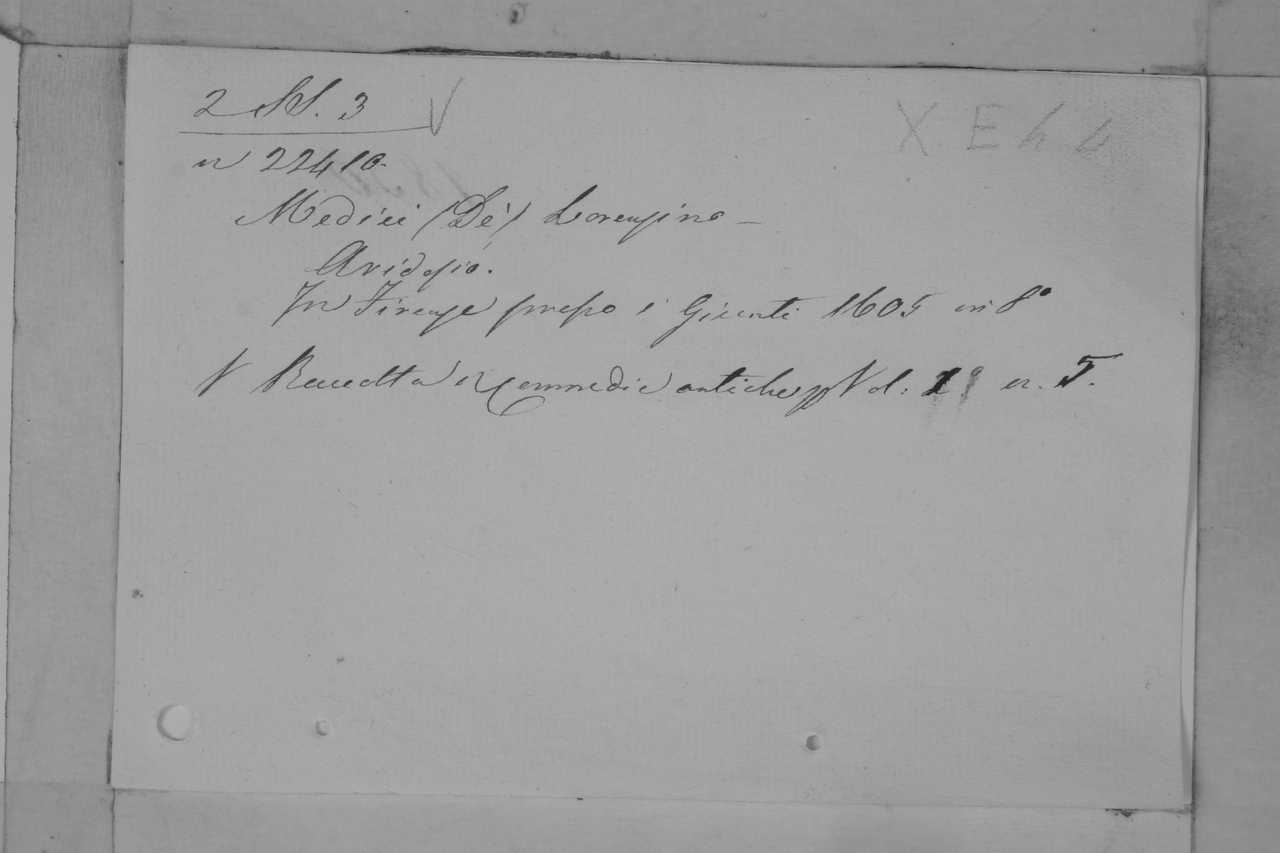 2 M. 3 V
X E h 4
n 22410
Medici (De') Lorenzino —
Aridosio.
In Firenze presso i Giunti 1605 in 8°
V Raccolta di Commedie antiche Vol: 1 n. 5.